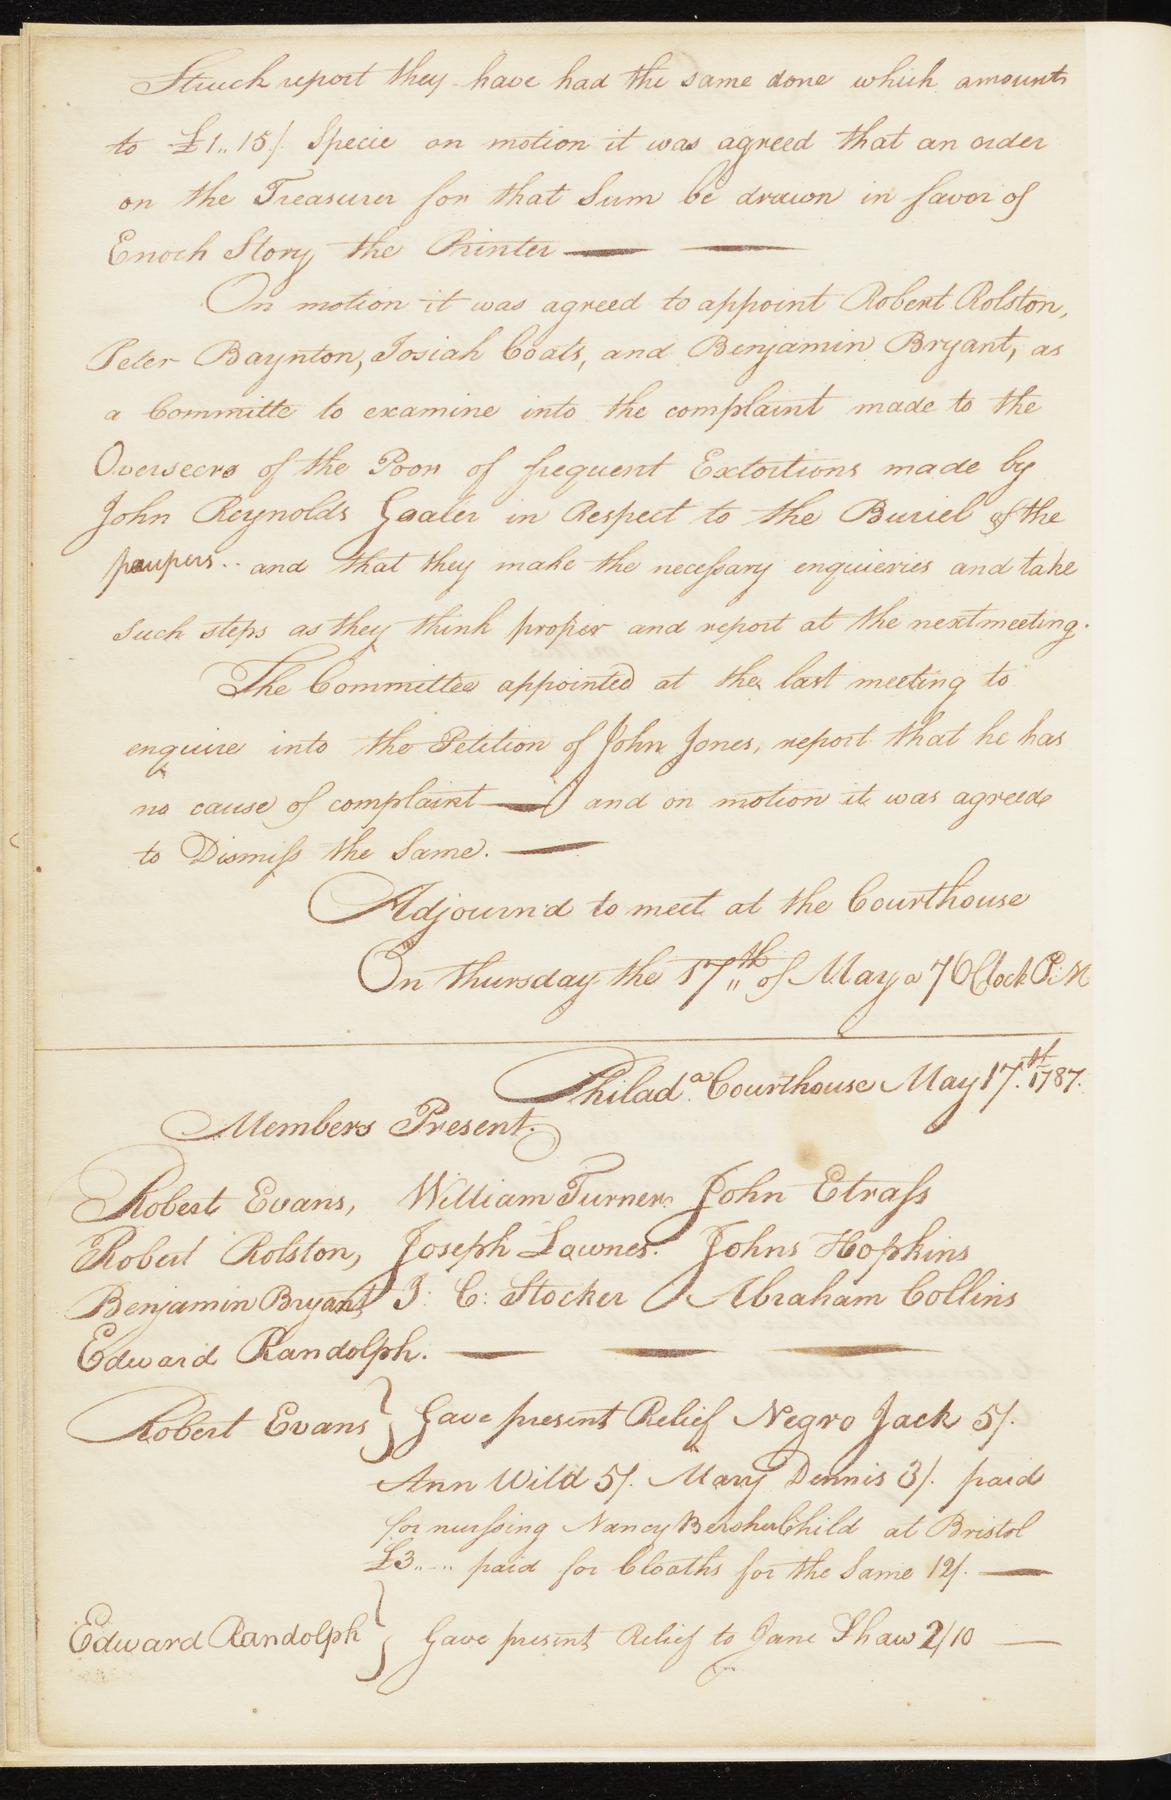 Struck report they have had the same done which amounts
to £1.. 15/. Specie on motion it was agreed that an order
on the Treasurer for that Sum be drawn in favor of
Enoch Story the Printer —— ——
On motion it was agreed to appoint Robert Rolston,
Peter Baynton, Josiah Coats, and Benjamin Bryant, as
a Committe to examine into the complaint made to the
Overseers of the Poor of frequent Extortions made by
John Reynolds Goaler in Respect to the Buriel of the
paupers.. and that they make the necessary enquieries and take
such steps as they think proper and report at the next meeting.
The Committee appointed at the last meeting to
enquire into the Petition of John Jones, report that he has
no cause of complaint —— and on motion it was agreed
to Dismiss the Same. ——
Adjourn'd to meet at the Courthouse
On thursday the 17,,th of May a 7 OClock P. M
Philad.a Courthouse May 17.th 1787.
Members Present.
Robert Evans, William Turner. John Etrass
Robert Rolston, Joseph Lawnes. Johns Hopkins
Benjamin Bryant J: C: Stocker Abraham Collins
Edward Randolph. —— —— ——
Robert Evans } Gave present Relief Negro Jack 5/.
Ann Wild 5/. Mary Dennis 3/. paid
for nurssing Nancy Child at Bristol
£3..-.. paid for Cloaths for the Same 12/. ——
Edward Randolph } Gave present Relief to Jane Shaw 2/10 ——